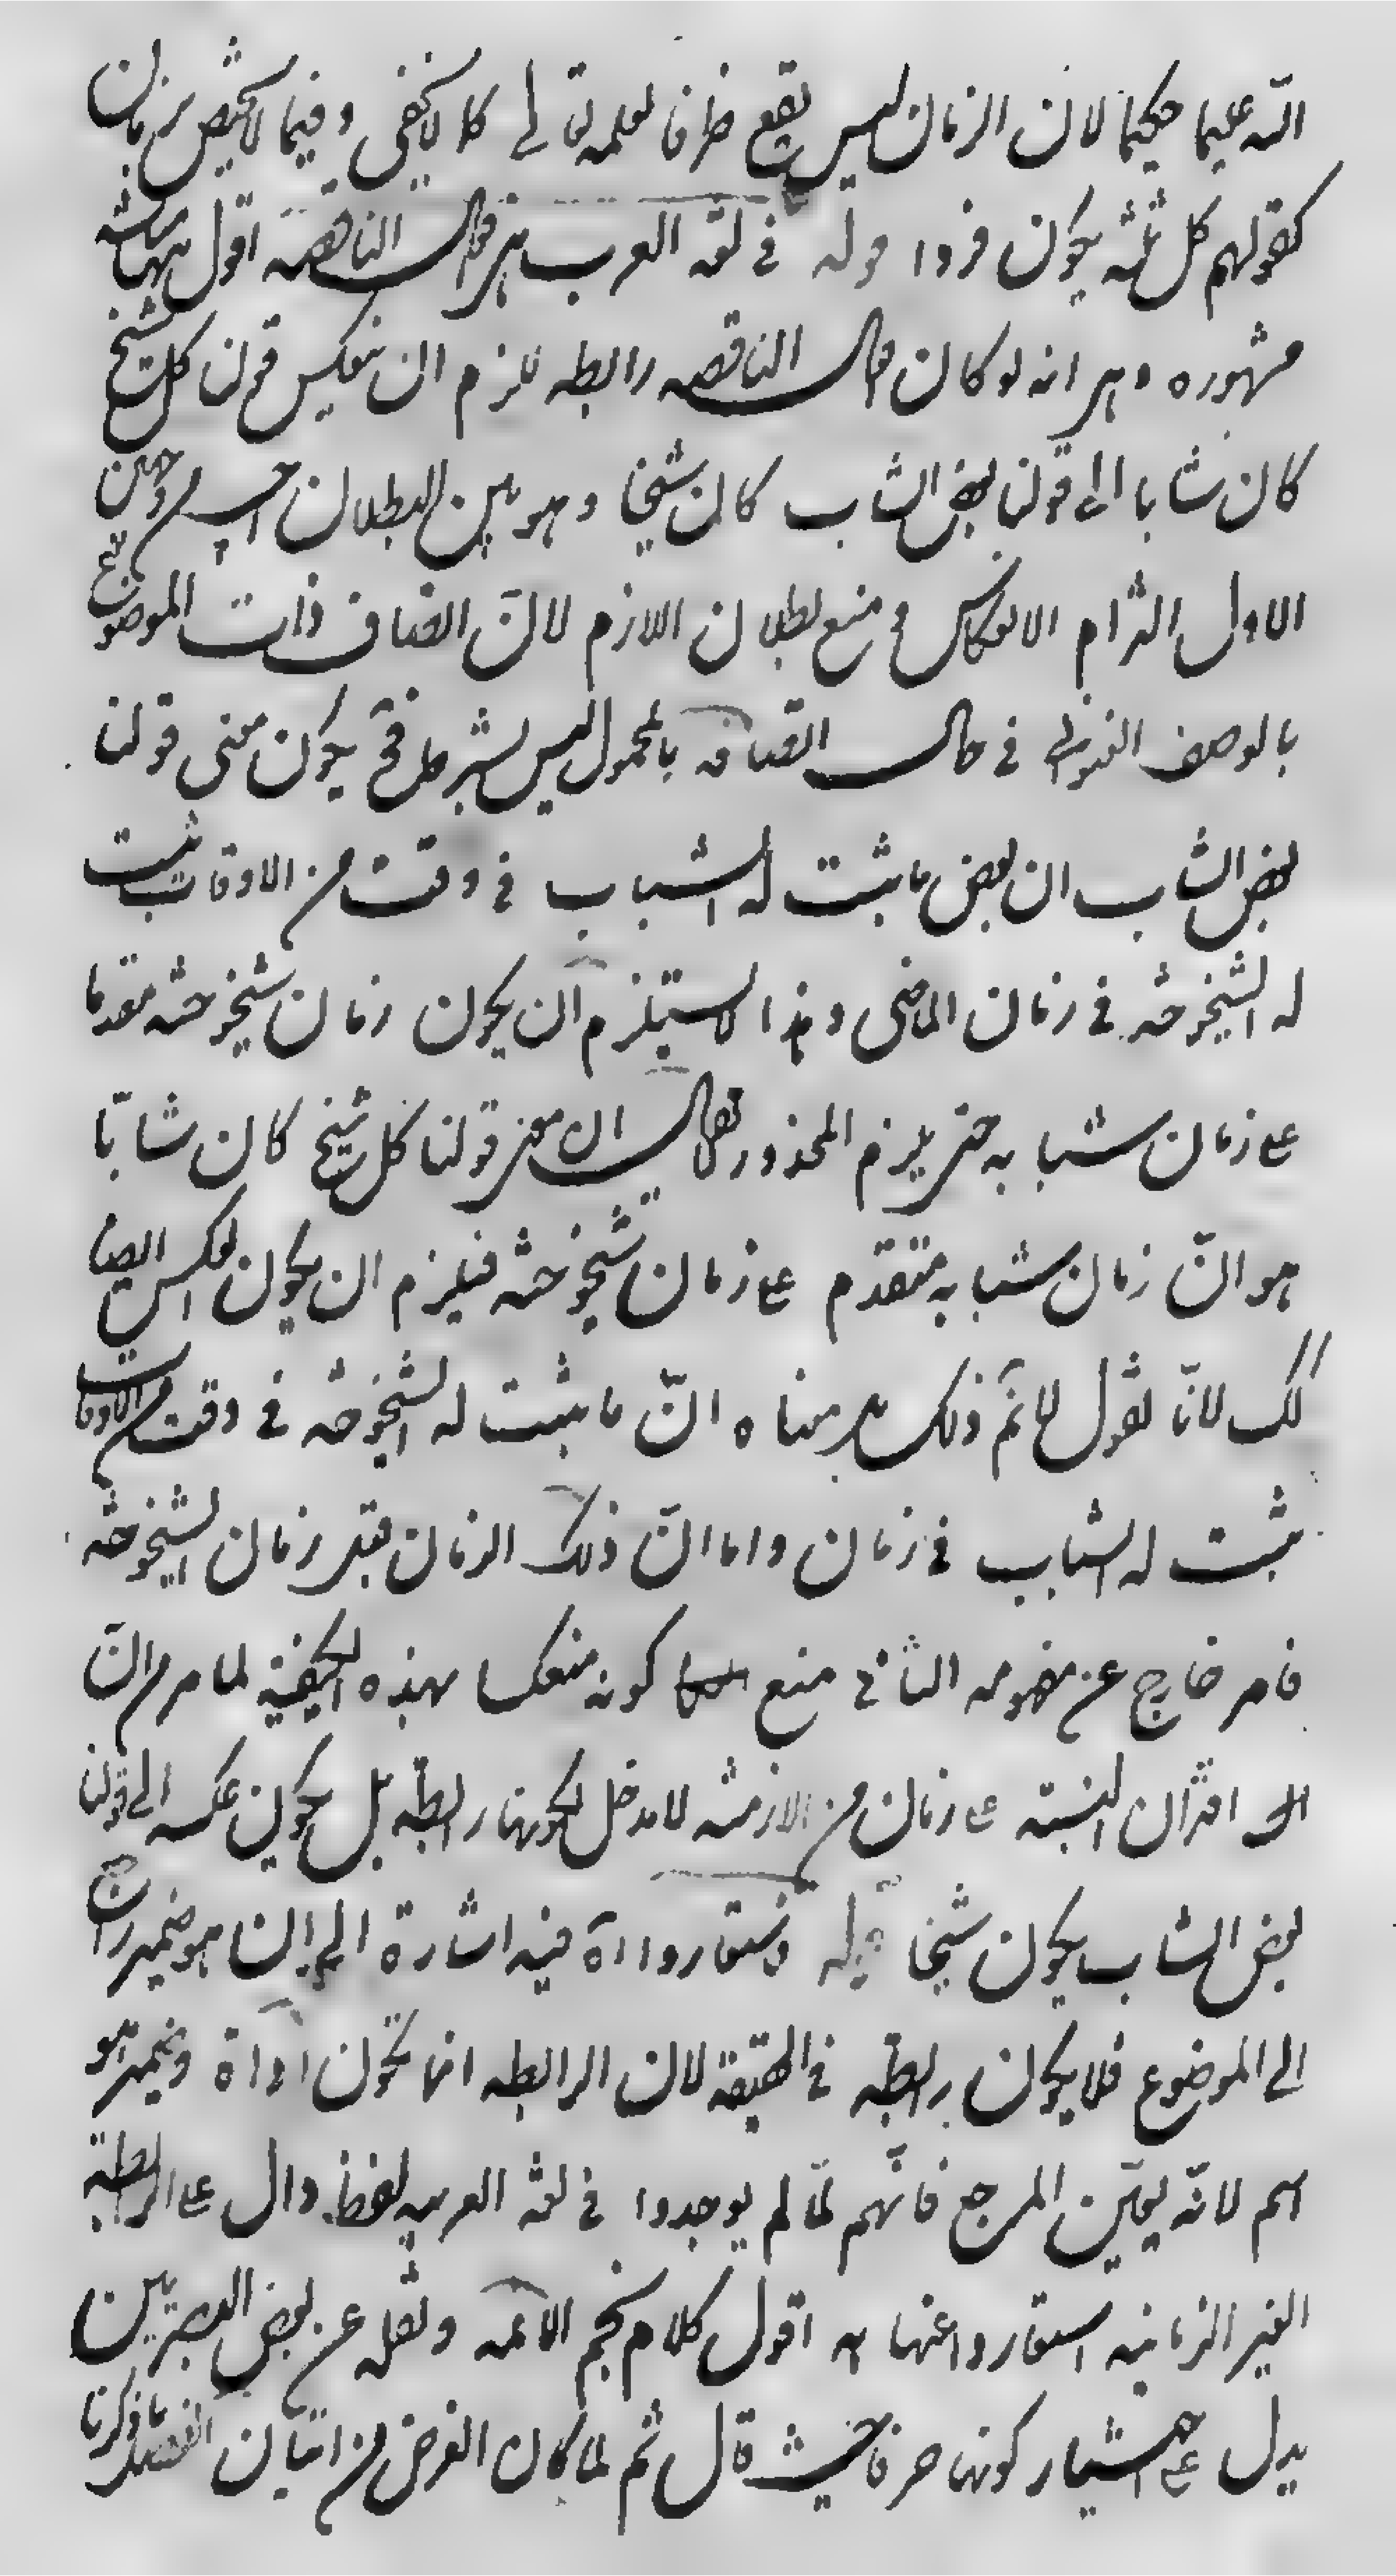 الله عليما حكيما لان الزمان ليس يقع ظرفا لعلمه تعالى كما لا يخفى وفيما لا يختص بزمان
كقولهم كل ثلثه يكون فردا قوله في لغه العرب هي افعال الناقصه اقول ههنا شبهه
مشهوره وهي انه لو كان افعال الناقصه رابطه للزم ان ينعكس قولنا كل شيخ
كان شابا الى قولنا بعض الشاب كان شيخا وهو بين البطلان اجيب من وجهين
الاول التزام الانعكاس ومنع بطلان اللازم لانّ اتصاف ذات الموضوع
بالوصف العنواني في حال اتصافه بالمحمول ليس بشرط فح يكون معنى قولنا
بعض الشاب ان بعض ما يثبت له الشباب في وقت من الاوقات يثبت
له الشيخوخه في زمان الماضى وهذا لا يستلزم ان يكون زمان شيخوخته مقدما
على زمان شبابه حتى يلزم المحذور لا يقال ان معنى قولنا كل شيخ كان شابّا
هو انّ زمان شبابه متقدم على زمان شيخوخته فيلزم ان يكون العكس ايضا
كك لانّا نقول لا نم ذلك بل معناه انّ ما يثبت له الشيخوخه في وقت من الاوقات
يثبت له الشباب في زمان واما انّ ذلك الزمان قبل زمان الشيخوخه
فامر خارج عن مفهومه الثاني منع كونه منعكسا بهذه الكيفية لما مر من انّ
اقتران النسبته على زمان من الازمنه لا مدخل لكونها رابطه بل يكون عكسه الى قولنا
بعض الشاب يكون شيخا قوله فاستعاروا اه فيه اشارة الى ان هو ضمير راجع
الى الموضوع فلا يكون رابطه في الحقيقة لان الرابطه انما تكون اداة وضمير هو
اسم لانّه يعيّن المرجع فانّهم لمّا لم يوجدوا في لغه العربيه لفظا دال على الرابطة
الغير الزمانيه استعاروا عنها اقول كلام نجم الائمه ونقله عن بعض البصريين
يدل على اختيار كونها حرفا حيث قال ثم لما كان الغرض من اتيان الفصل ما ذكرنا